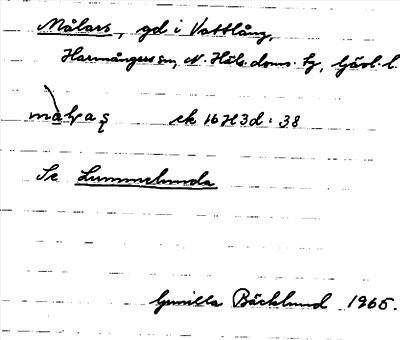 Målars, gd i Vattlång,
Harmångers sn, N. Häls. doms. tg, Gävl. l.
ek 16H3d:38
Se Lummelunda
Gunilla Bäcklund 1965.